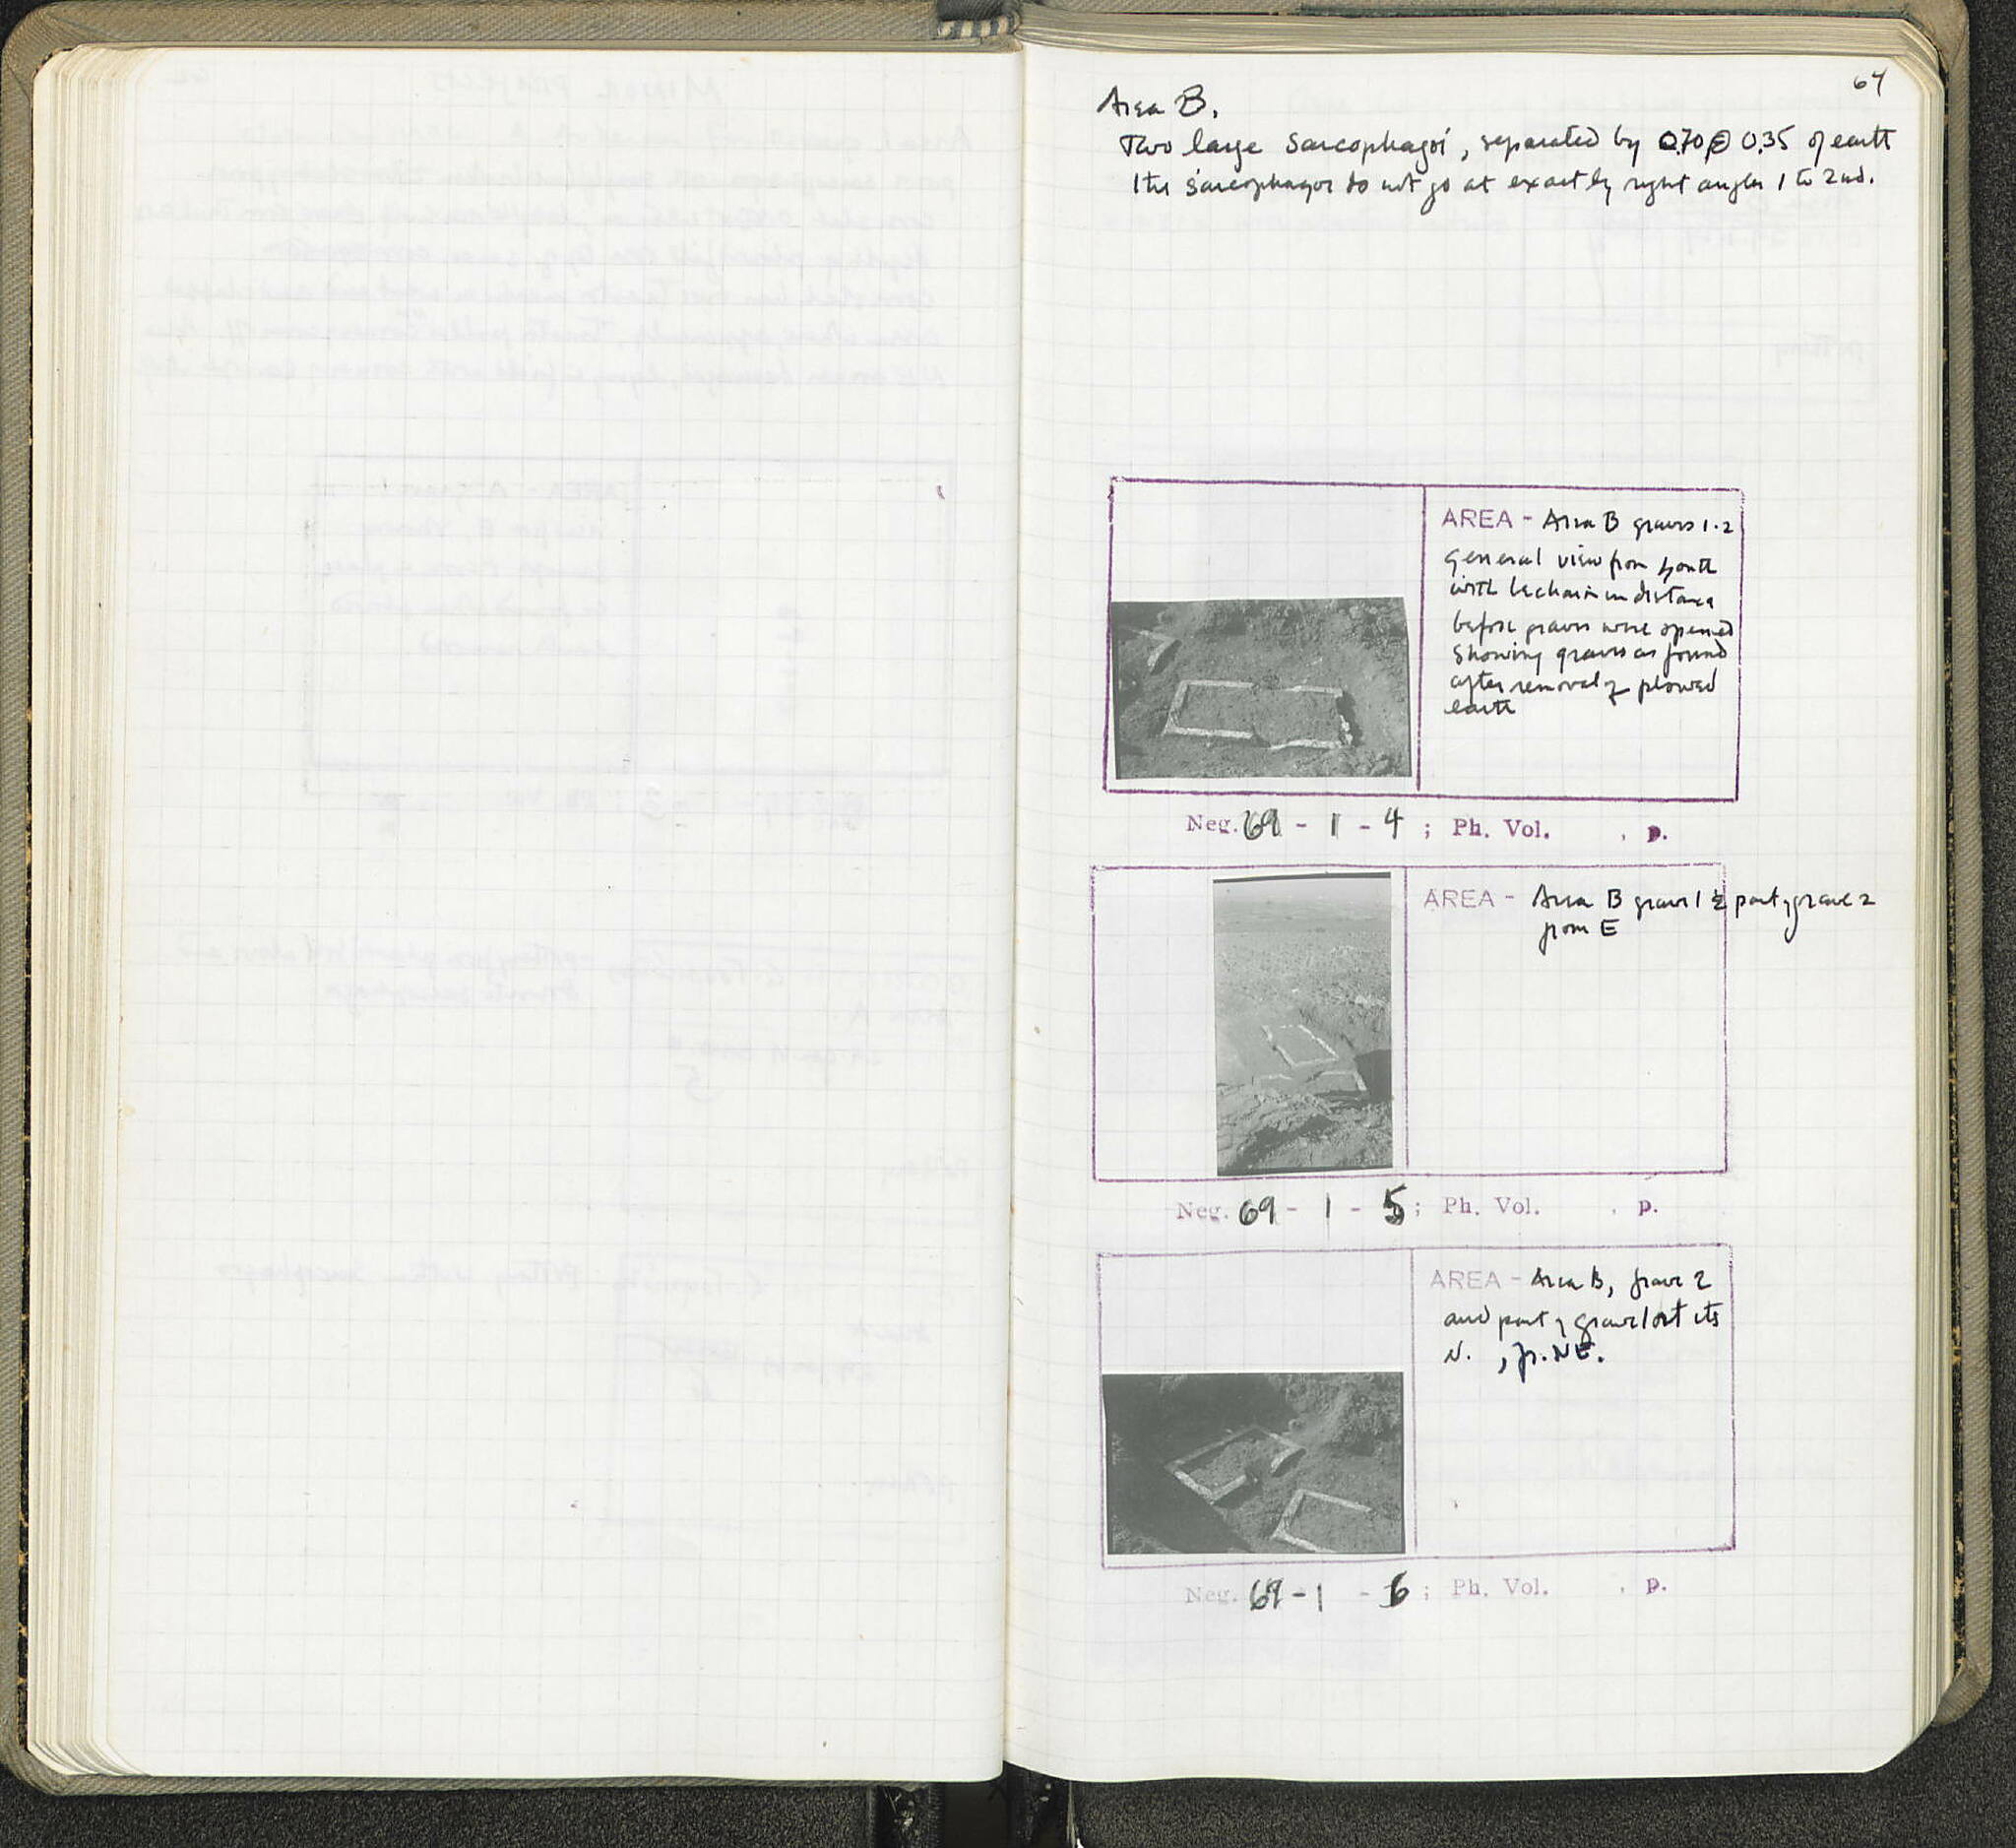 64
Area B.
Two large sarcophagoi, separated by 0.70 @ 0.35 of earth
The sarcophagoi do not go at exactly right angles 1 to 2nd.
AREA - Area B graves 1-2
general view from South
with Lechaion in distance
before graves were opened
Showing graves as found
after removal of plowed
earth
Neg. 69 - 1 - 4 ; Ph. Vol. , p.
AREA - Area B grave 1 & part of grave 2
from E
Neg. 69 - 1 - 5 ; Ph. Vol. , p.
AREA - Area B, grave 2
and part of grave 1 at its
N. , fr. NE.
Neg. 69 - 1 - 6 ; Ph. Vol. , p.